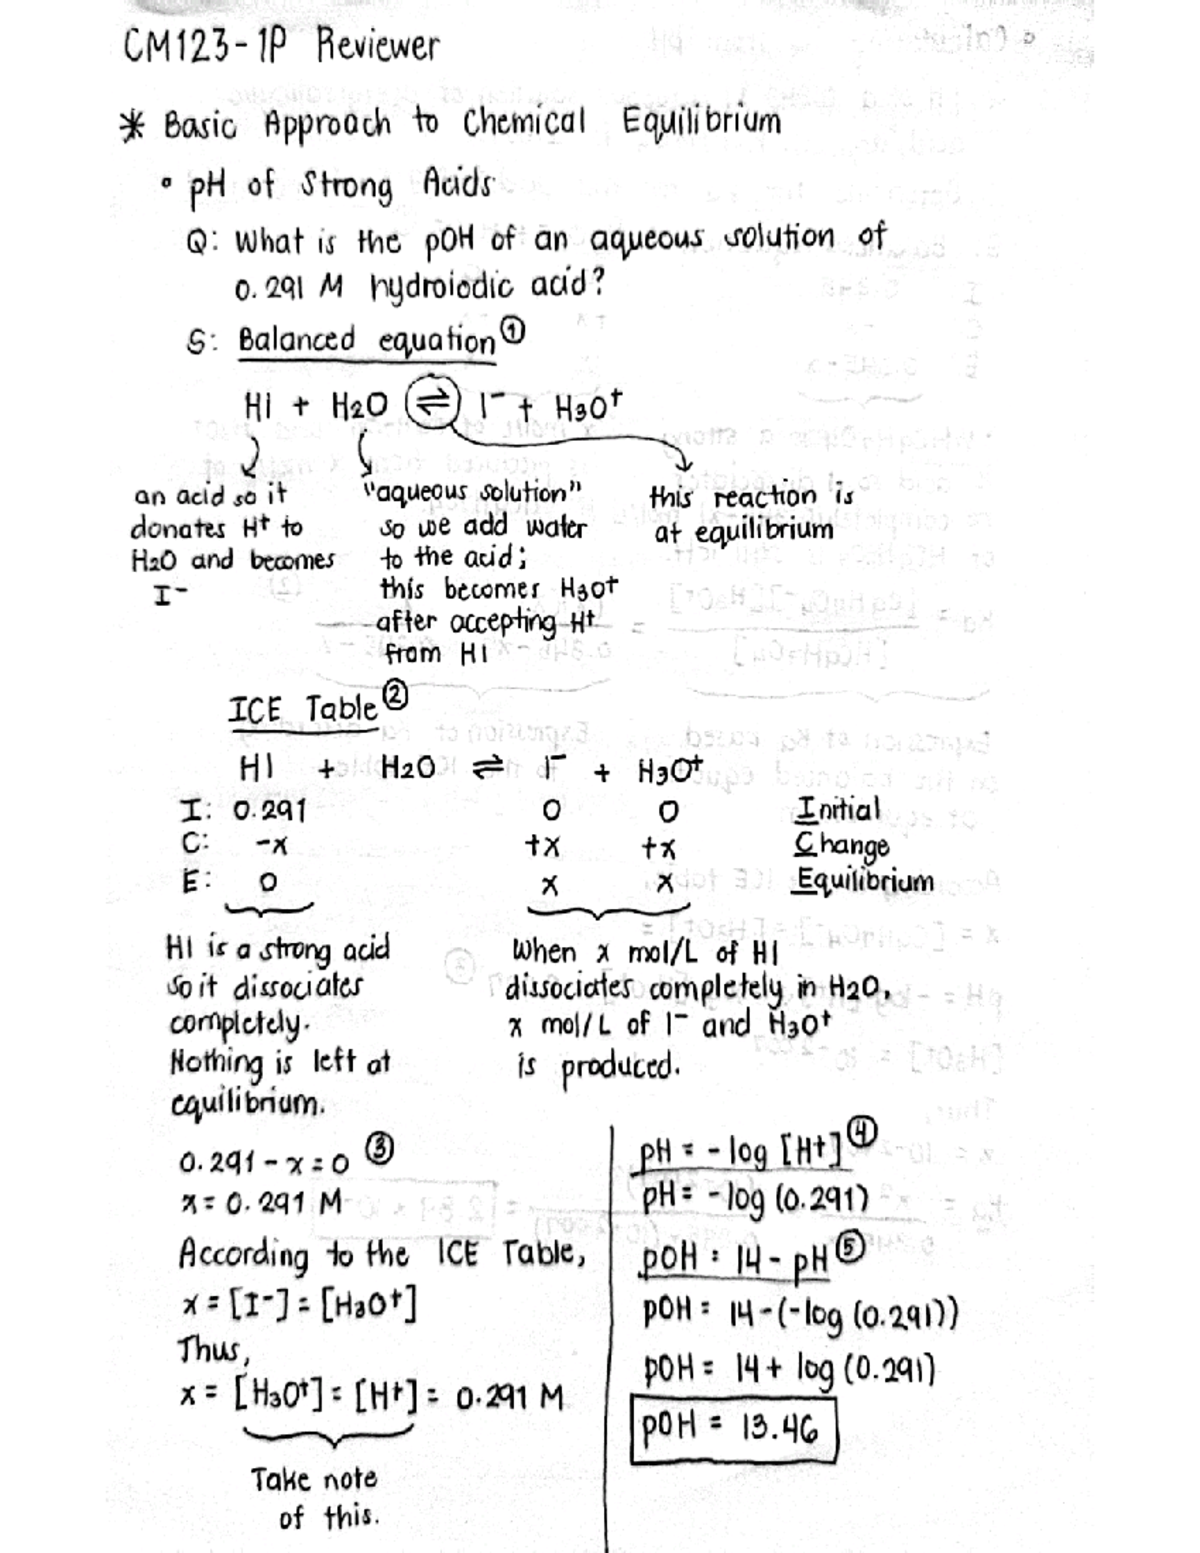 CM123-1P Reviewer
* Basic Approach to Chemical Equilibrium
• pH of Strong Acids
Q: What is the pOH of an aqueous solution of
0.291 M hydroiodic acid?
S: Balanced equation ①
HI + H2O ⇌ I⁻ + H3O⁺
an acid so it
donates H⁺ to
H2O and becomes
I⁻
"aqueous solution"
so we add water
to the acid;
this becomes H3O⁺
after accepting H⁺
from HI
this reaction is
at equilibrium
ICE Table ②
HI + H2O ⇌ I⁻ + H3O⁺
I: 0.291 0 0 Initial
C: -x +x +x Change
E: 0 x x Equilibrium
HI is a strong acid
so it dissociates
completely.
Nothing is left at
equilibrium.
When x mol/L of HI
dissociates completely in H2O,
x mol/L of I⁻ and H3O⁺
is produced.
0.291 - x = 0 ③
x = 0.291 M
According to the ICE Table,
x = [I⁻] = [H3O⁺]
Thus,
x = [H3O⁺] = [H⁺] = 0.291 M
Take note
of this.
pH = -log [H⁺] ④
pH = -log (0.291)
pOH = 14 - pH ⑤
pOH = 14-(-log (0.291))
pOH = 14 + log (0.291)
pOH = 13.46